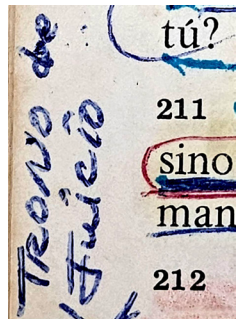 Trono de
Juicio
tú?
211
sino
man
212